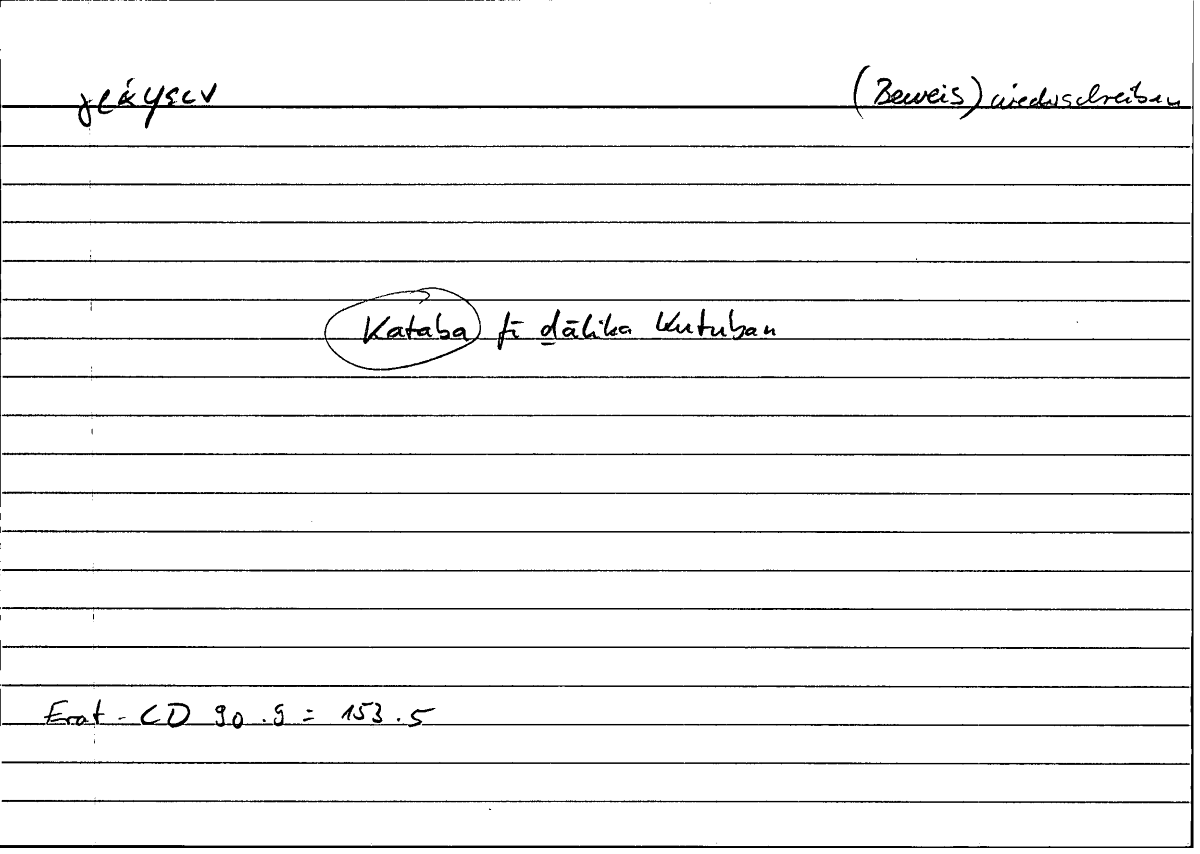 γράψειν (Beweis) niederschreiben
Kataba fī ḏālika Kutuban
Erat - CD 90.9 = 153.5